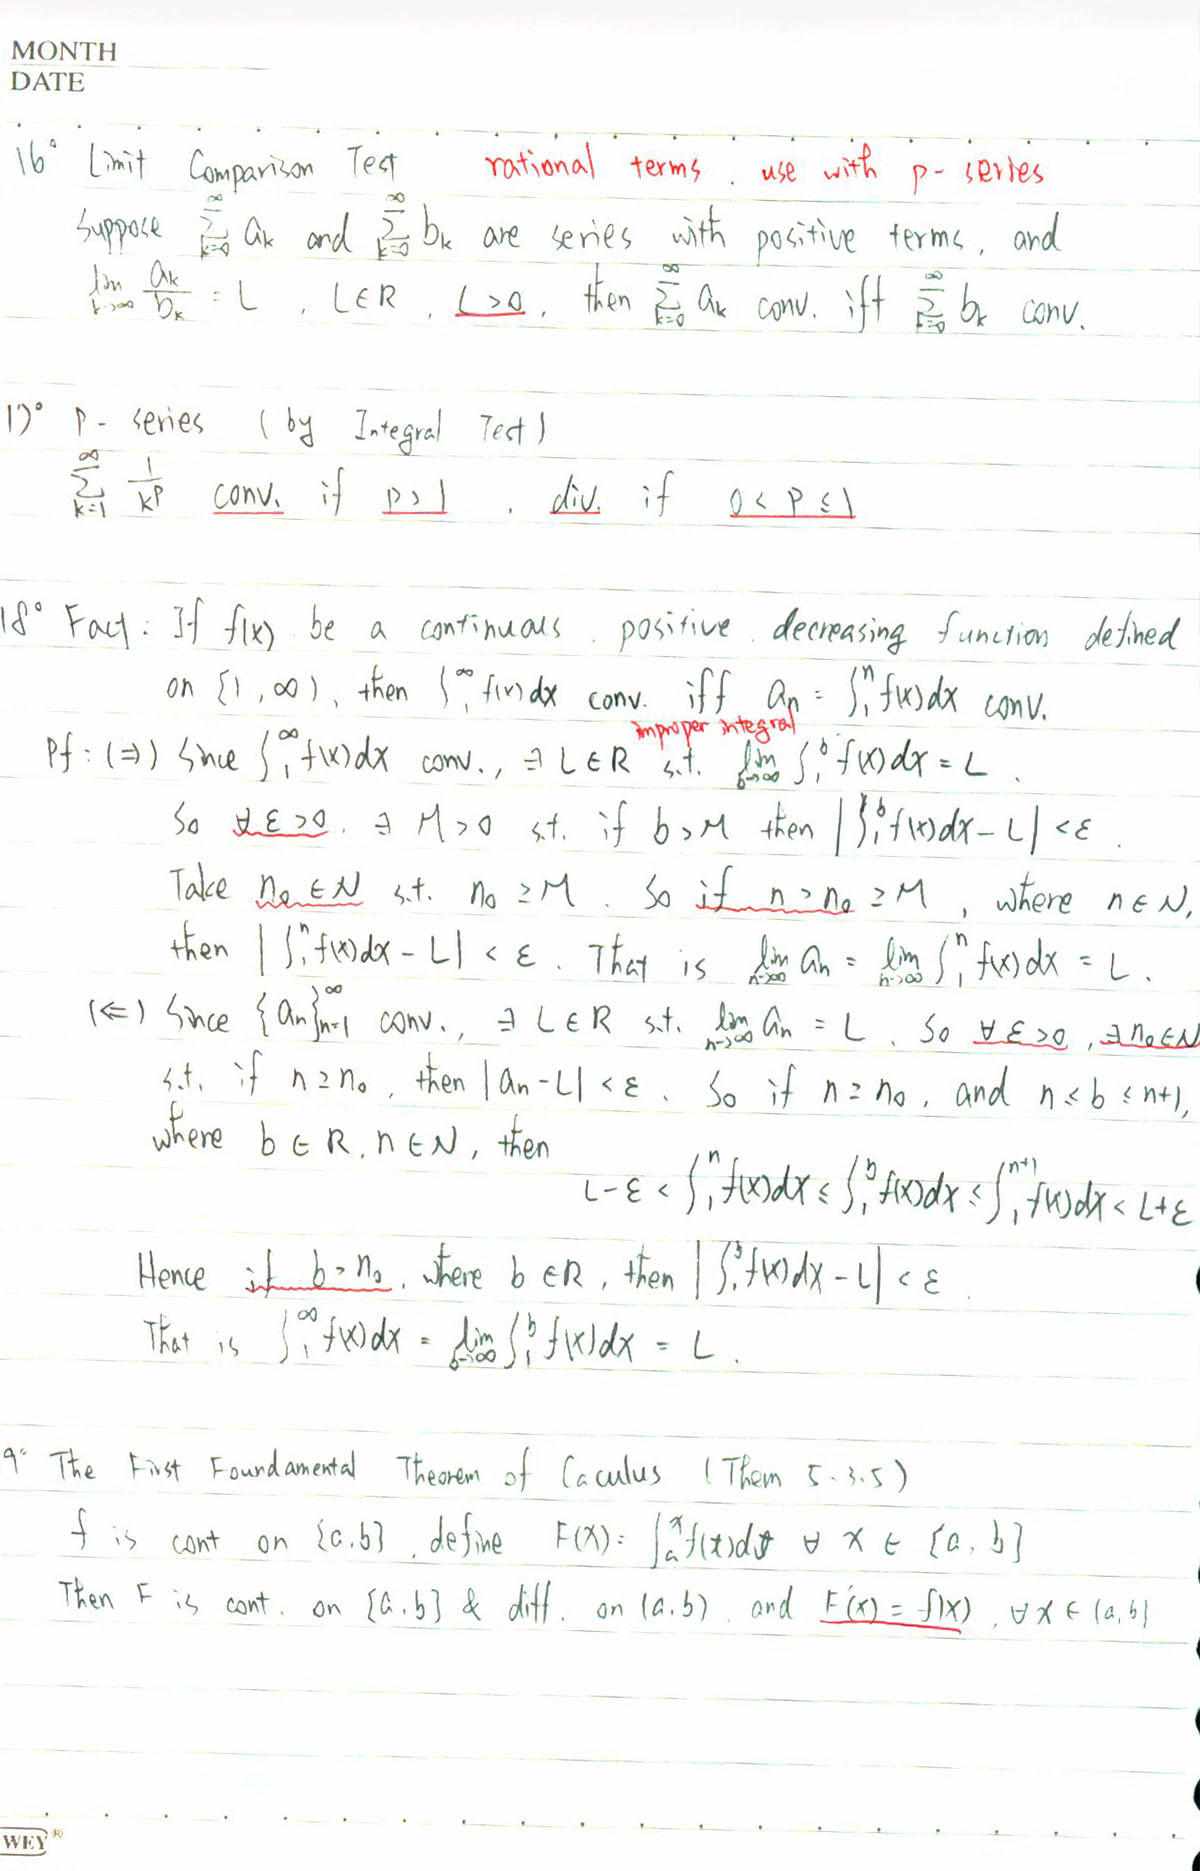 MONTH
DATE
16° Limit Comparison Test rational terms, use with p-series
Suppose ∑_{k=0}^{∞} a_k and ∑_{k=0}^{∞} b_k are series with positive terms, and
lim_{k→∞} a_k/b_k = L, L∈R, L>0, then ∑_{k=0}^{∞} a_k conv. iff ∑_{k=0}^{∞} b_k conv.
17° P-series (by Integral Test)
∑_{k=1}^{∞} 1/k^p conv. if p>1, div. if 0<p≤1
18° Fact: If f(x) be a continuous, positive, decreasing function defined
on [1,∞), then ∫_1^∞ f(x)dx conv. iff a_n = ∫_1^n f(x)dx conv.
improper integral
Pf: (⇒) Since ∫_1^∞ f(x)dx conv., ∃ L∈R s.t. lim_{b→∞} ∫_1^b f(x)dx = L.
So ∀ε>0, ∃ M>0 s.t. if b>M then |∫_1^b f(x)dx - L| < ε.
Take n₀∈N s.t. n₀≥M. So if n>n₀≥M, where n∈N,
then |∫_1^n f(x)dx - L| < ε. That is lim_{n→∞} a_n = lim_{n→∞} ∫_1^n f(x)dx = L.
(⇐) Since {a_n}_{n=1}^∞ conv., ∃ L∈R s.t. lim_{n→∞} a_n = L. So ∀ε>0, ∃n₀∈N
s.t. if n≥n₀, then |a_n - L| < ε. So if n≥n₀, and n≤b≤n+1,
where b∈R, n∈N, then
L-ε < ∫_1^n f(x)dx ≤ ∫_1^b f(x)dx ≤ ∫_1^{n+1} f(x)dx < L+ε
Hence if b>n₀, where b∈R, then |∫_1^b f(x)dx - L| < ε.
That is ∫_1^∞ f(x)dx = lim_{b→∞} ∫_1^b f(x)dx = L.
9° The First Foundamental Theorem of Caculus (Them 5.3.5)
f is cont on [a,b], define F(x) = ∫_a^x f(t)dt ∀ x∈[a,b]
Then F is cont. on [a,b] & diff. on (a,b), and F'(x) = f(x), ∀x∈(a,b)
WEY ®